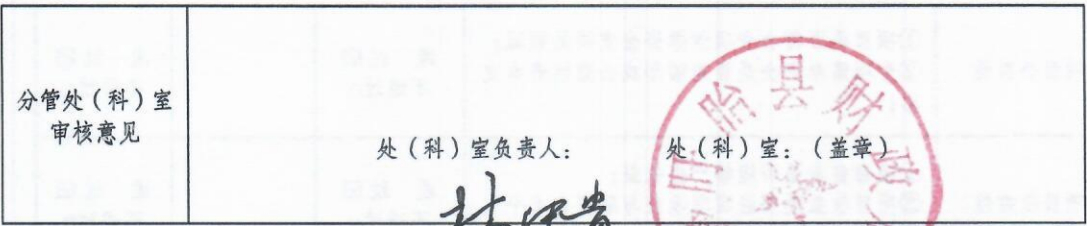 分管处（科）室
审核意见
处（科）室负责人：
处（科）室：（盖章）
盱眙县财政